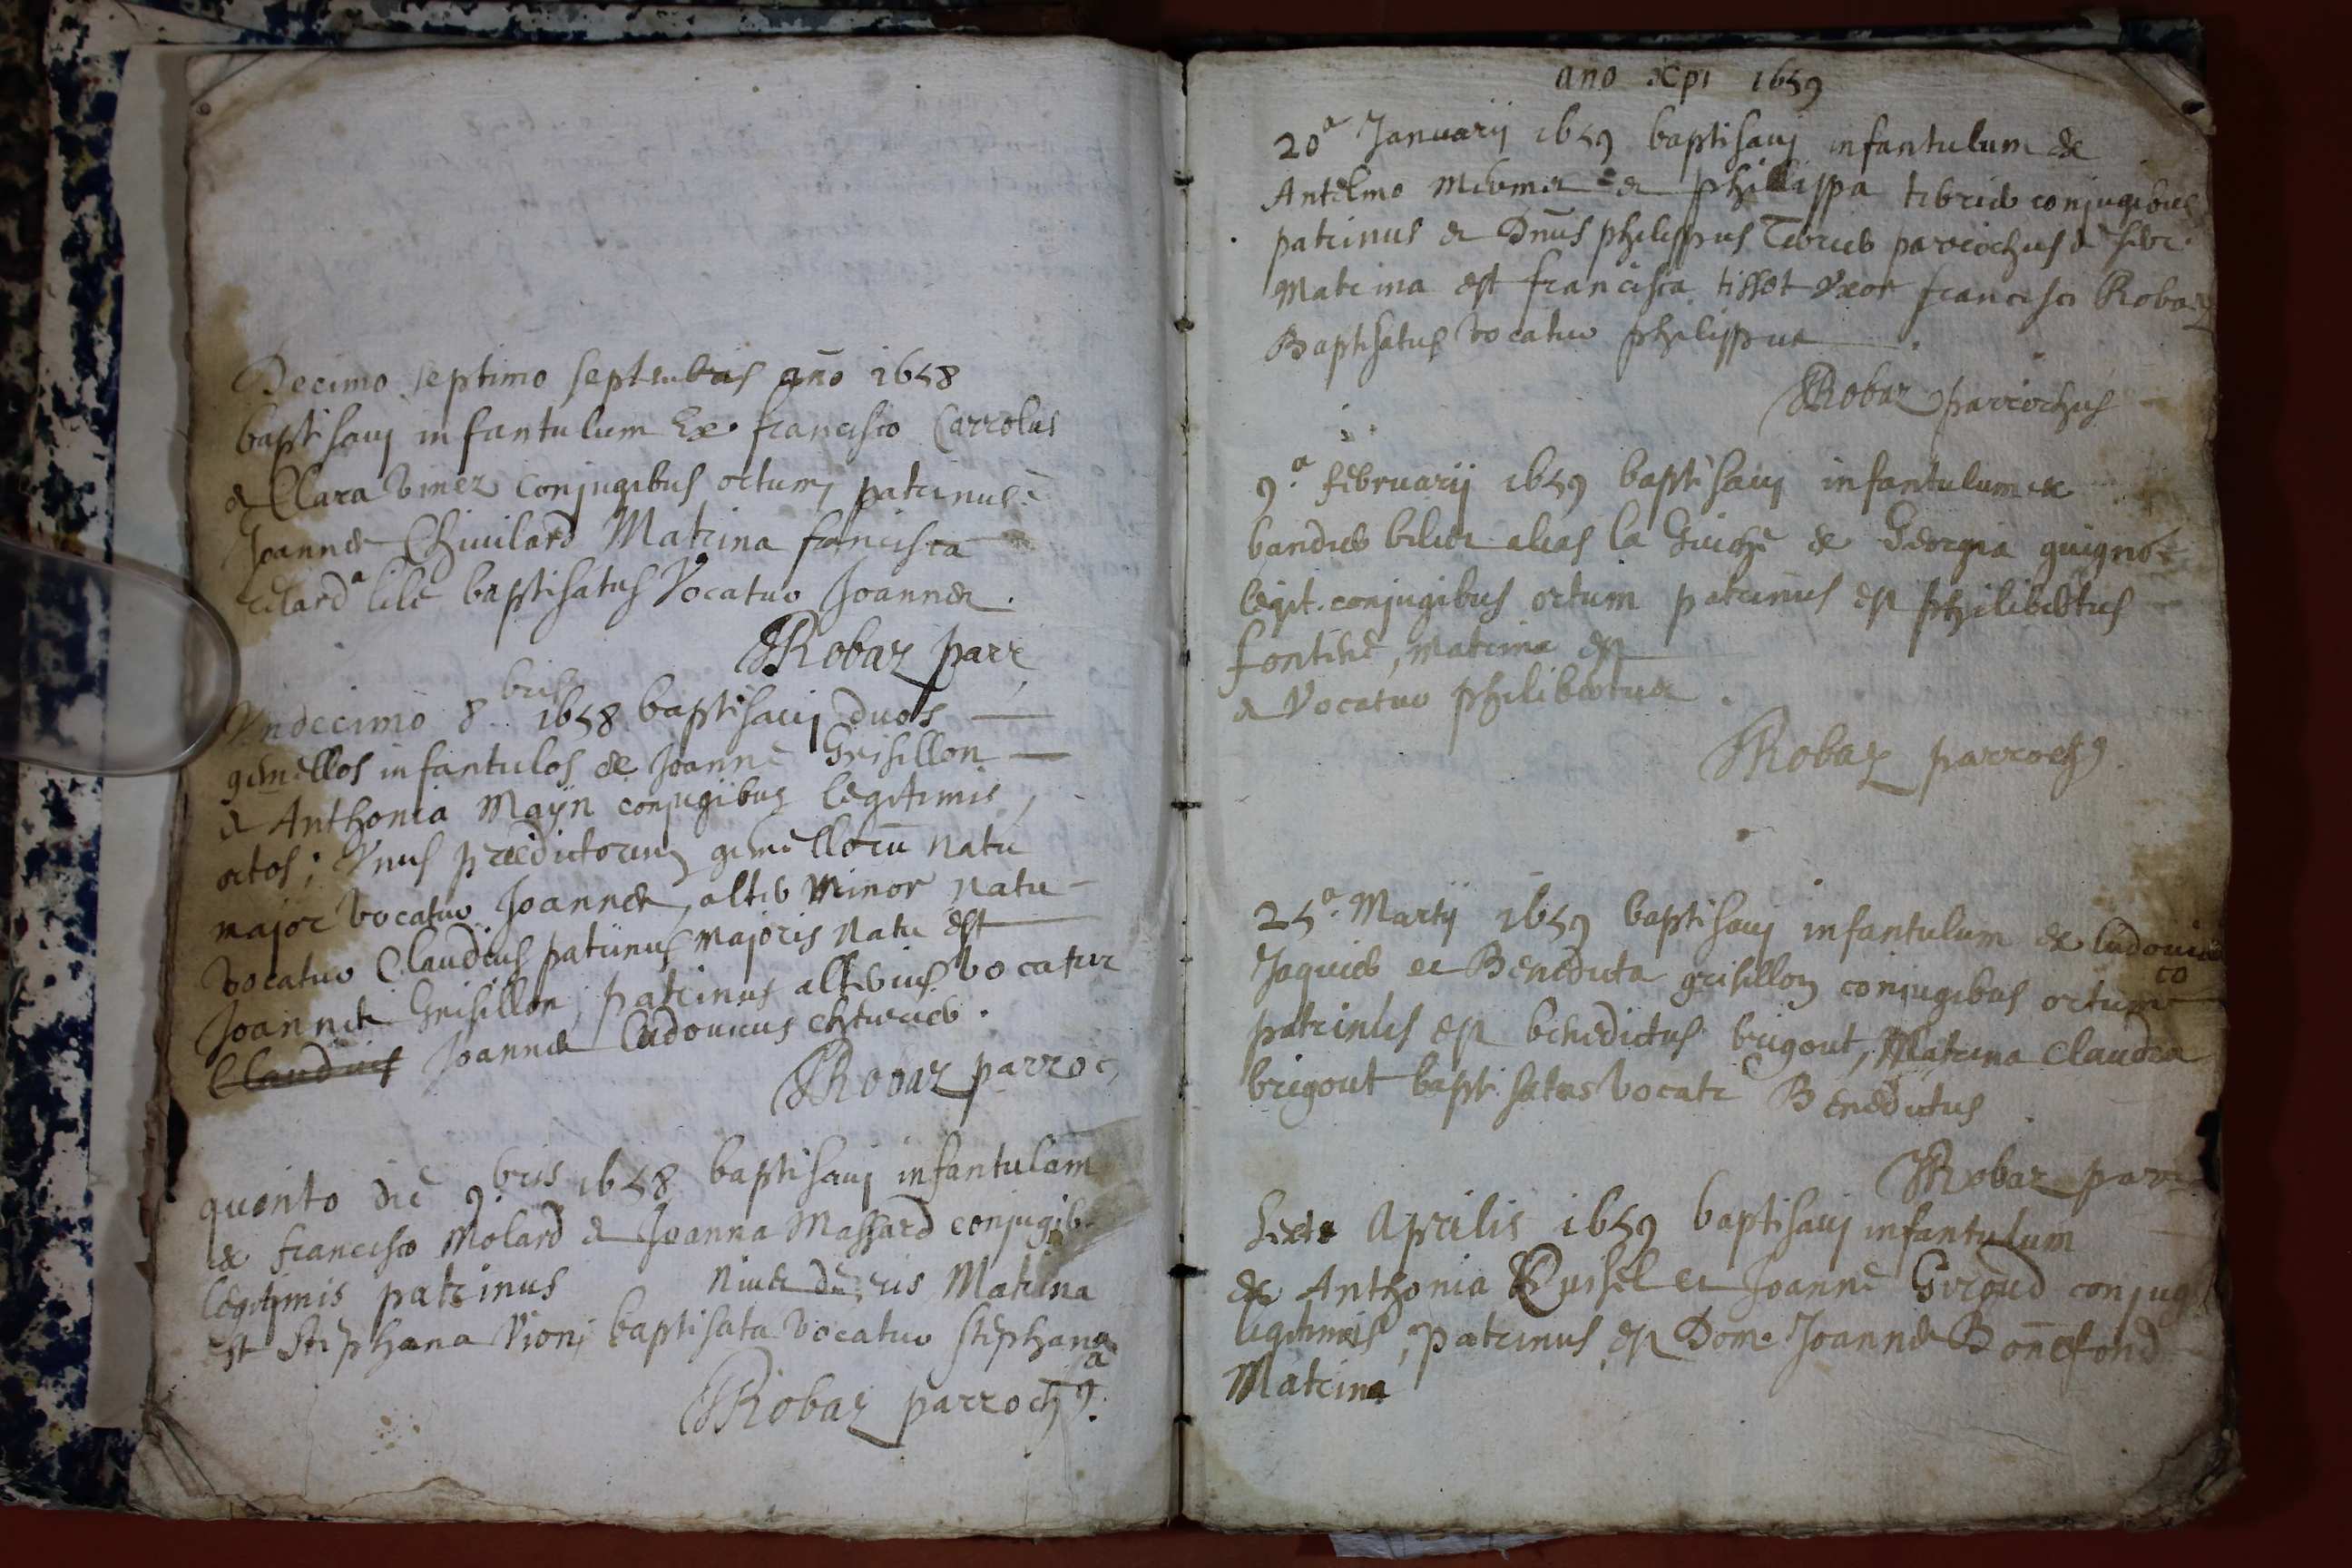 Decimo septimo septembris año 1658
baptisavj infantulum Ex francisco Carrolus
& Clara vinez conjugibus ortum patrinus ē
Joannes Chivilard Matrina francisca
baptisatus Vocatur Joannes.
JRobaz parr
Vndecimo 8bris 1658 baptisavj duos
gemellos infantulos ex Joanne Grisillon
& Anthonia Mayn conjugibus legitimis
ortos; Vnus prædictorum gemellorū natu
major vocatur Joannes, alter minor natu
vocatur Claudius patrinus majoris natu est
Joannes Grisillon, patrinus alterius vocatur
Claudius Joannes Ludovicus
JRobaz parroc
quinto die 9bris 1658 baptisavj infantulam
ex francisco Molard & Joanna Massard conjugib
legitimis patrinus Matrina
est Stephana Vion baptisata vocatur stephana
JRobaz parroch9.
año xpi 1659
20a Januarij 1659 baptisavj infantulum ex
Antelmo & phillippa tivrier conjugibus
patrinus & Dn̄us philippus Tivrier parrochus
Matrina est francisca tissot Vxor francisci Robaz
Baptisatus vocatur philippus
JRobaz parrochus
9.a februarij 1659 baptisavj infantulum ex
alias la Guiche & Georgia guignot
legit. conjugibus ortum patrinus est philibertus
fontene, matrina est
& Vocatur philibertus.
JRobaz parroch9
25a. Martij 1659 baptisavj infantulum ex ludovico
Jaquier et Benedicta grisillon conjugibus ortum
patrinus est benedictus brigout, Matrina Claudia
brigout baptisatus vocatr Benedictus
JRobaz parr
Sexto Aprilis 1659 baptisavj infantulum
ex Anthonia Russel et Joanne Giroud conjug
legitimis, patrinus est Dom. Joannes Bon̄efond
Matrina